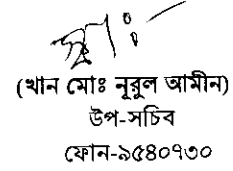 স্বাঃ
(খান মোঃ নূরুল আমীন)
উপ-সচিব
ফোন-৯৫৪০৭৩০